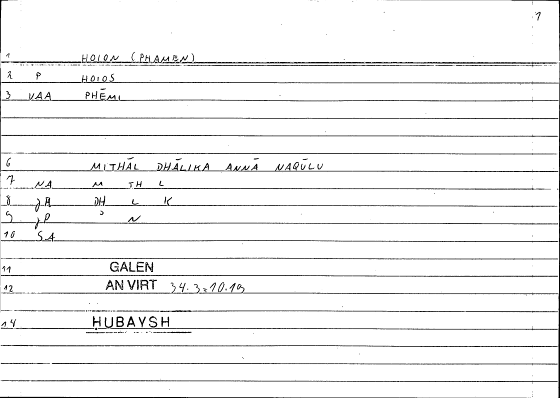 1
1 HOION (PHAMEN)
2 P HOIOS
3 VAA PHĒMI
6 MITHĀL DHĀLIKA ANNĀ NAQŪLU
7 NA M TH L
8 jA DH L K
9 jP ʾ N
10 SA
11 GALEN
12 AN VIRT 34.3=10.19
14 HUBAYSH